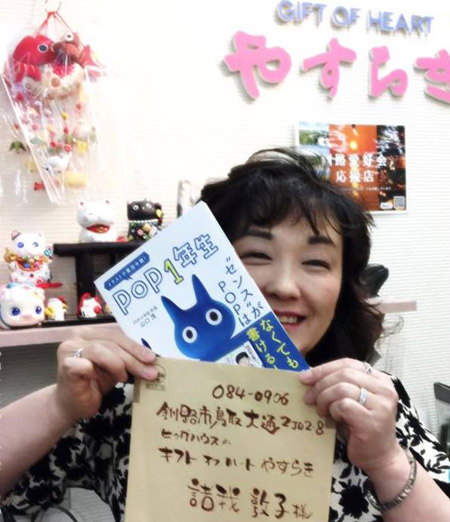 GIFT OF HEART
やすらぎ
愛好会
応援店
POP1年生
“センス”が
なくても
POPは
書ける!
084-0906
釧路市鳥取大通2丁目2-8
ビッグハウス内
ギフト オブ ハート やすらぎ
諸我 敦子 様